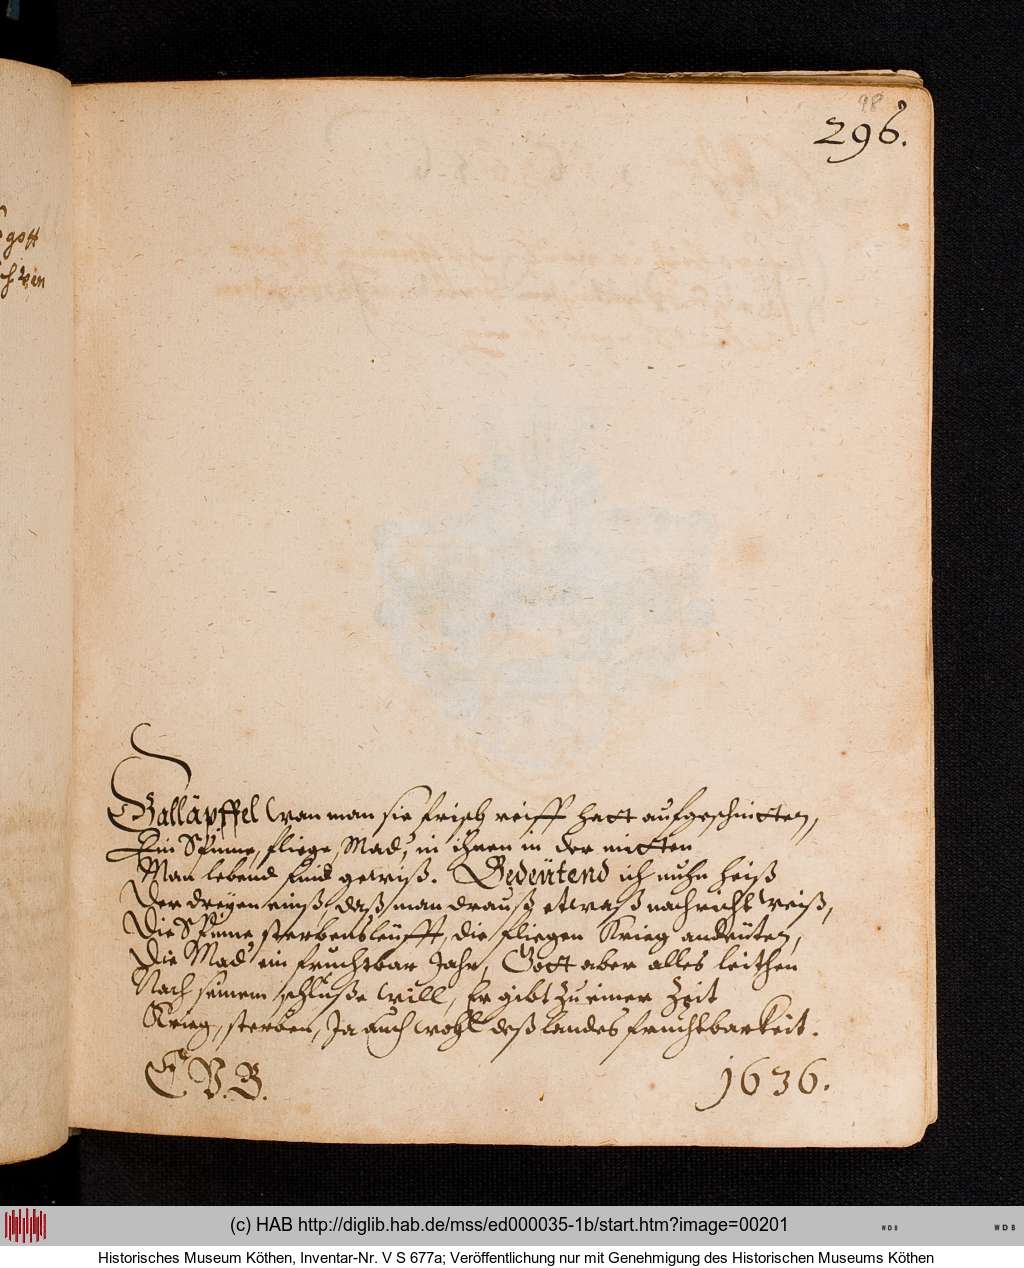 98
296.
gott
Galläpffel wan man sie frisch reiff hatt aufgeschnitten,
Ein Spinne, fliege, Mad, in ihnen in der mitten
Man lebend find gewiß. Bedeütend ich nuhn heiß
Der dreyen einß, daß man drauß etwaß nachricht weiß,
Die Spinne sterbensleüfft, die fliegen Krieg andeüten,
Die Mad ein fruchtbar Jahr, Gott aber alles leithen
Nach seinem schluße will, Er gibt zu einer Zeit
Krieg, sterben, Ja auch wohl deß landes fruchtbarkeit.
C. V. B. 1636.
(c) HAB http://diglib.hab.de/mss/ed000035-1b/start.htm?image=00201
WDB WDB
Historisches Museum Köthen, Inventar-Nr. V S 677a; Veröffentlichung nur mit Genehmigung des Historischen Museums Köthen